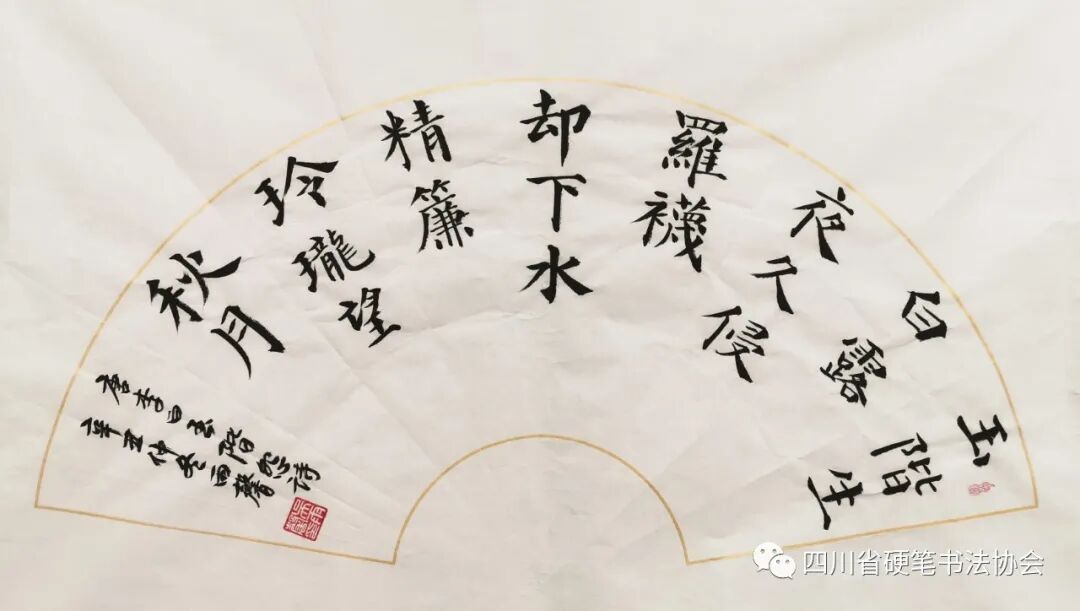 玉階生
白露
夜久侵
羅襪
却下水
精簾
玲瓏望
秋月
唐李白玉階怨詩
辛丑仲冬馨
四川省硬笔书法协会